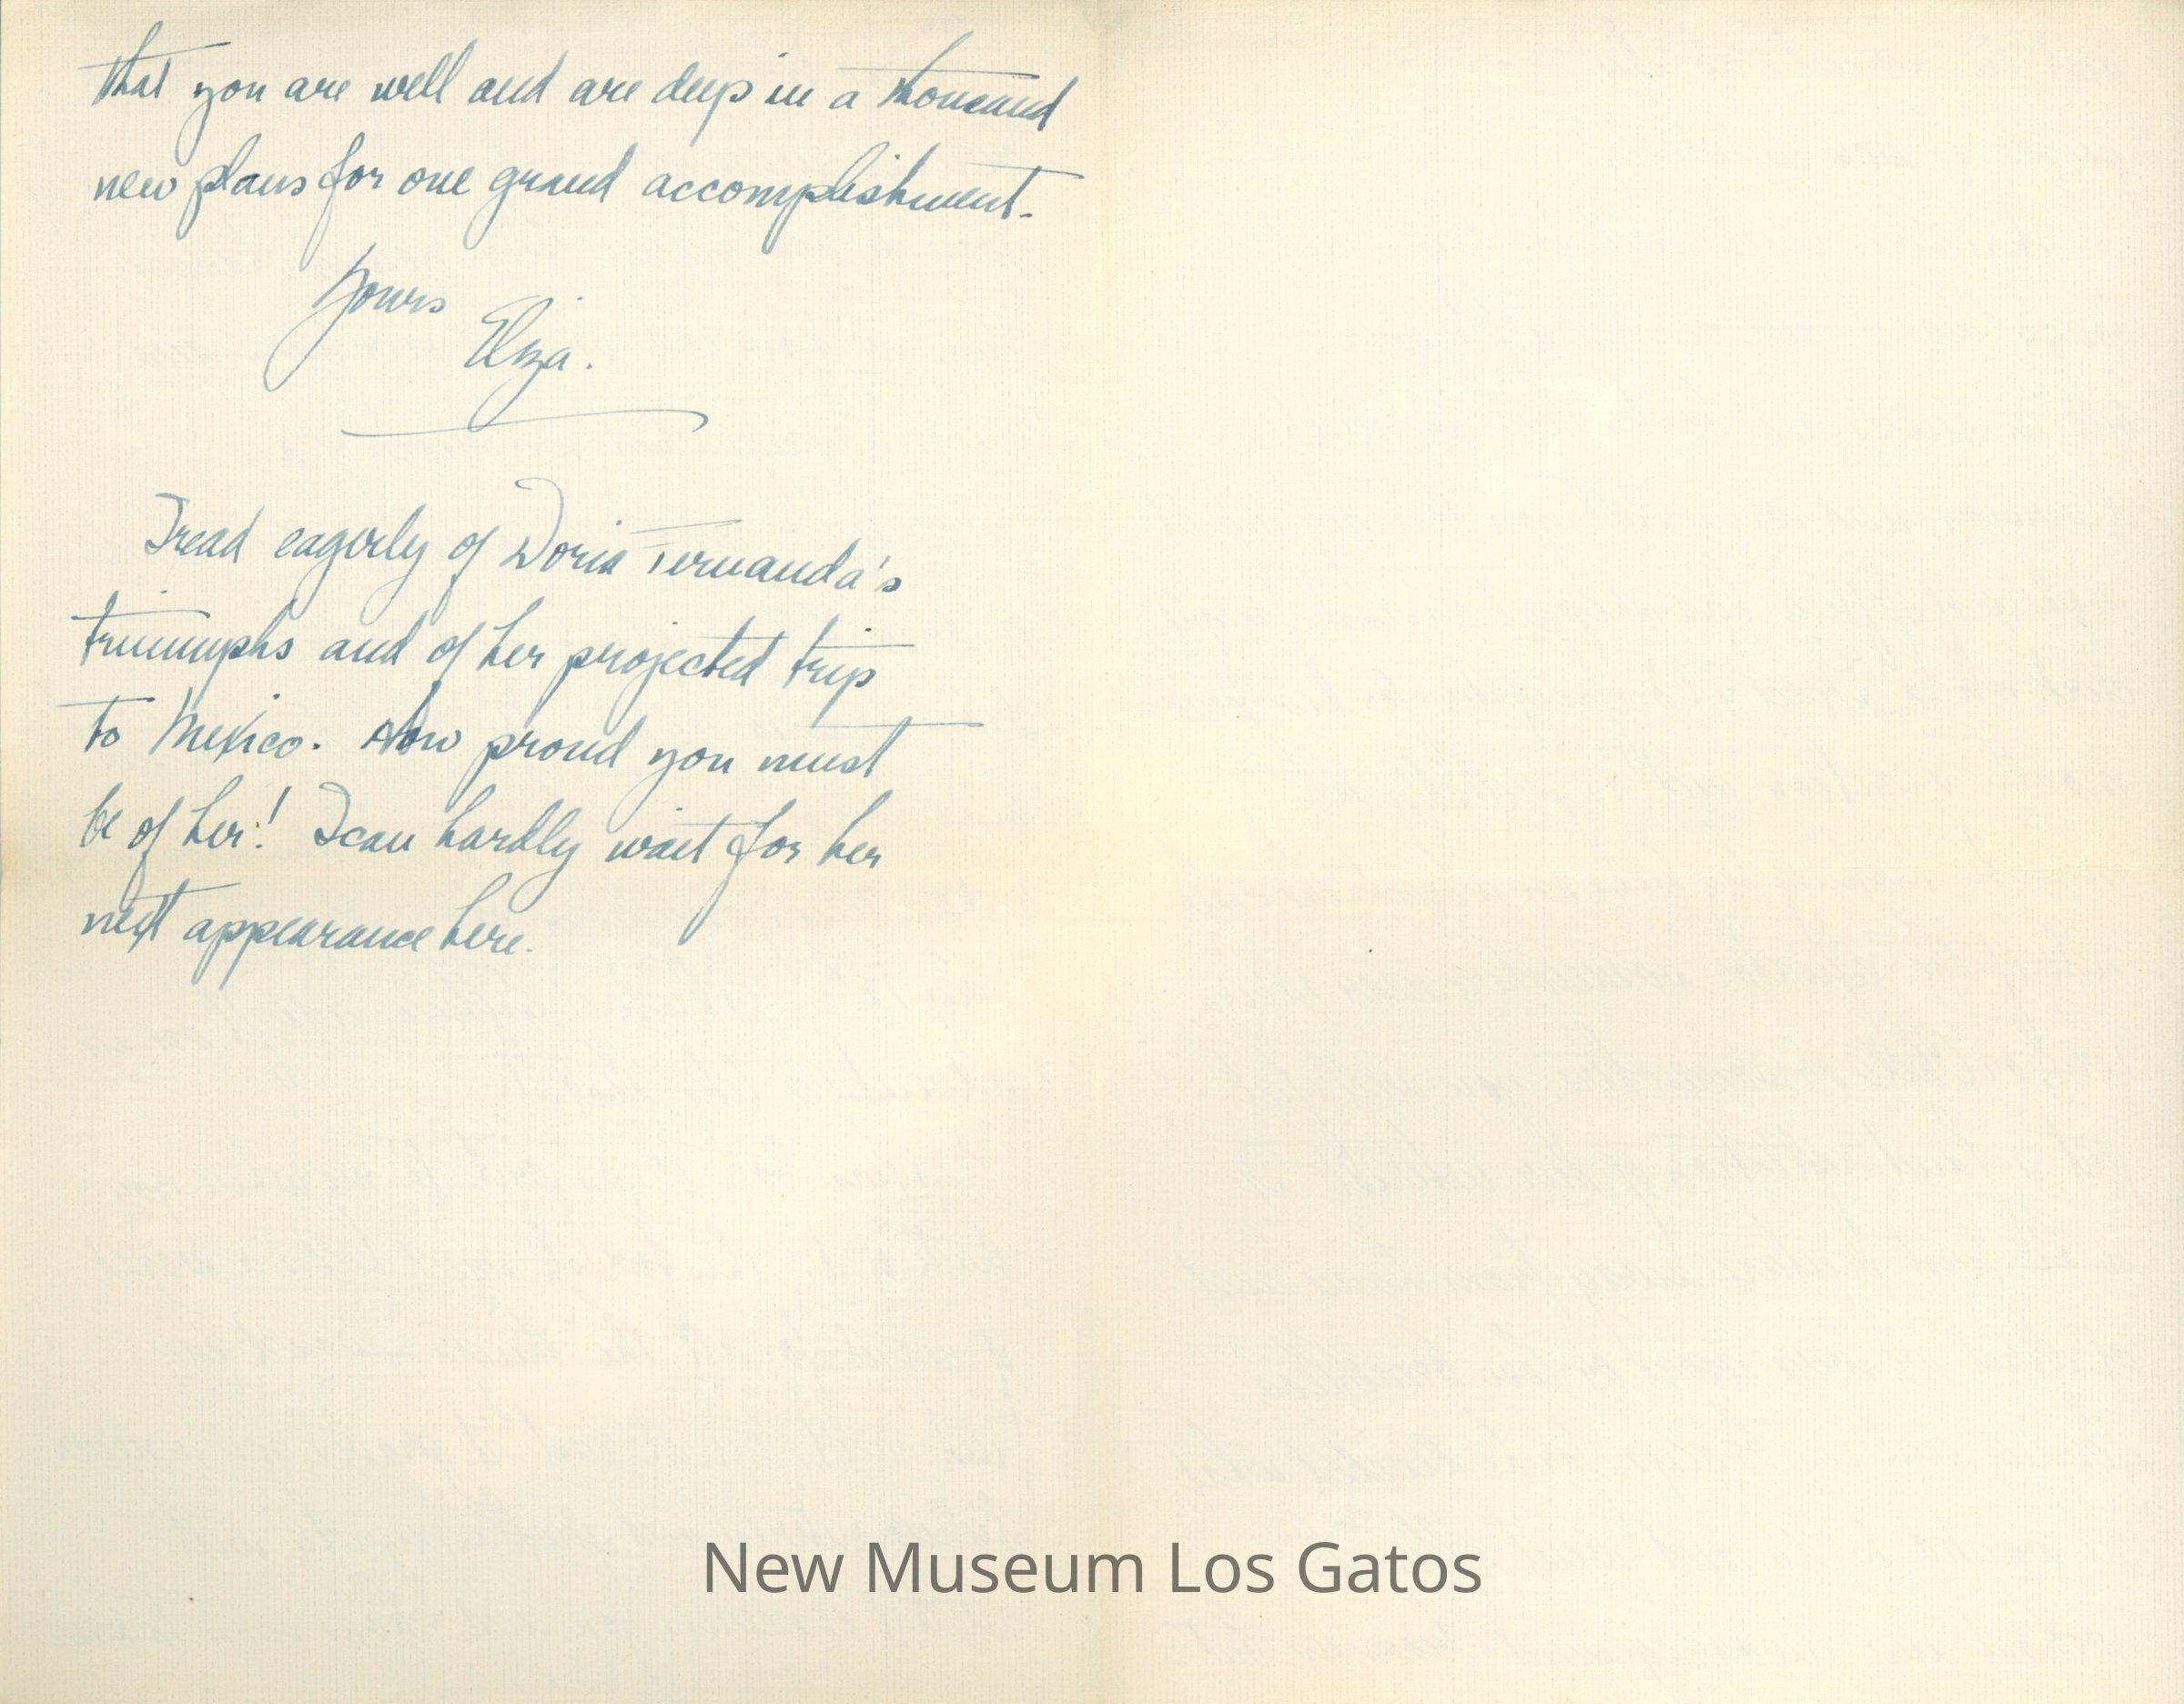 that you are well and are deep in a thousand
new plans for one grand accomplishment.
Yours
Eliza.
I read eagerly of Doria Fernanda's
triumphs and of her projected trip
to Mexico. How proud you must
be of her! I can hardly wait for her
next appearance here.
New Museum Los Gatos